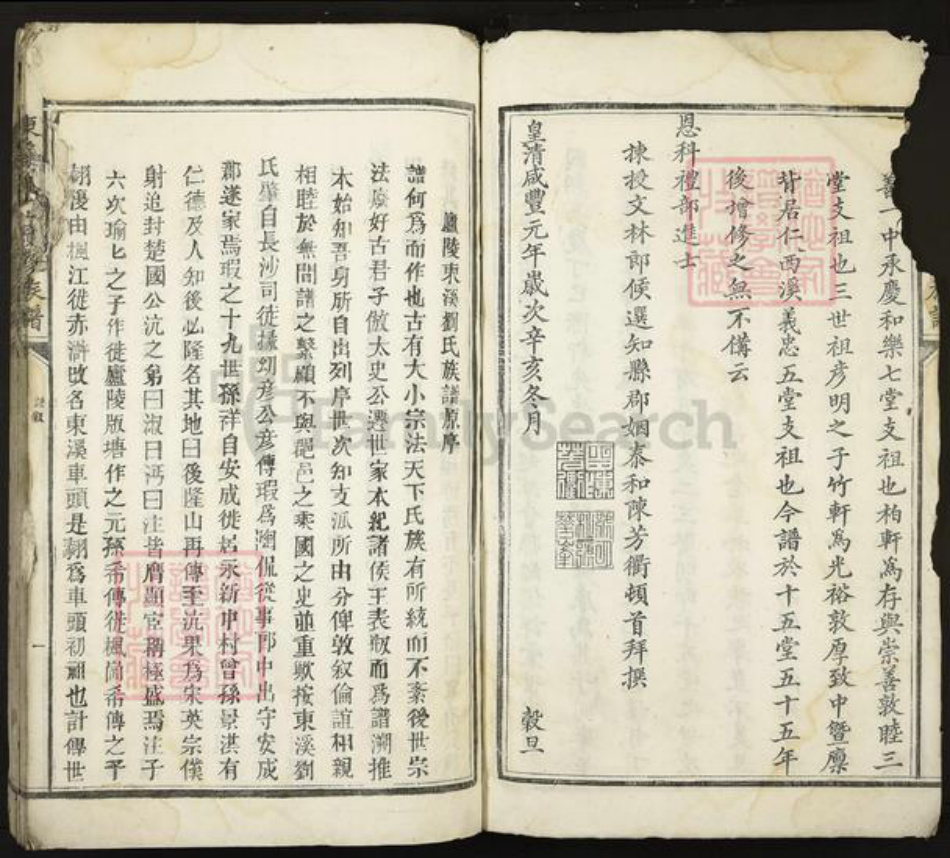 善一中承慶和樂七堂支祖也柏軒為存與崇善敦睦三
堂支祖也三世祖彥明之子竹軒為光裕敦厚致中暨廩
背居仁西溪義忠五堂支祖也今譜於十五堂五十五年
後增修之無不備云
恩科禮部進士
揀授文林郎候選知縣郡姻泰和陳芳衢頓首拜撰
皇清咸豐元年歲次辛亥冬月 穀旦
廬陵東溪劉氏族譜原序
譜何爲而作也古有大小宗法天下氏族有所統而不紊後世宗
法廢好古君子倣太史公遷世家本紀諸侯王表瓶而爲譜溯推
本始知吾身所自出列序世次知支派所由分俾敦叙倫誼相親
相睦於無間譜之繫顧不與郡邑之乘國之史並重歟按東溪劉
氏肇自長沙司徒據幼彥公彥傳瑕爲陶侃從事郎中出守安成
郡遂家焉瑕之十九世孫祥自安成徙居永新中村曾孫景淇有
仁德及人知後必隆名其地曰後隆山再傳至沆果爲宋英宗僕
射追封楚國公沆之弟曰淑曰沔曰注皆膺顯宦稱極盛焉注子
六次瑜匕之子作徙廬陵版塘作之元孫希傳徙楓崗希傳之子
翃復由楓江徙赤滸改名東溪車頭是翃爲車頭初祖也計傳世
一
族譜